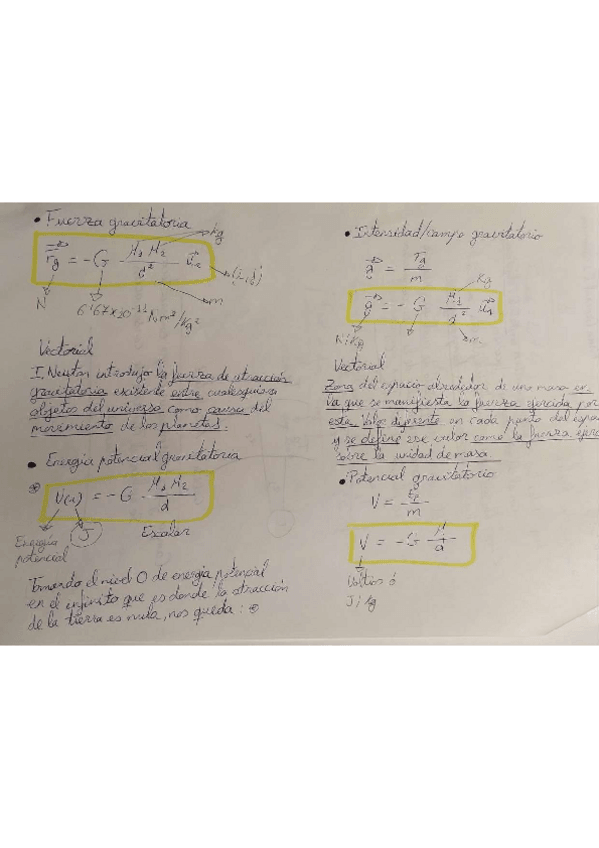 • Fuerza gravitatoria
Kg
Fg = -G · M1·M2 / d² · ur
(i, j)
N
m
6'67×10⁻¹¹ Nm²/Kg²
Vectorial
I. Newton introdujo la fuerza de atracción
gravitatoria existente entre cualesquiera
objetos del universo como causa del
movimiento de los planetas.
• Energía potencial gravitatoria
U(r) = -G · M1·M2 / d
J
Energía
potencial
Escalar
Tomando el nivel 0 de energía potencial
en el infinito que es donde la atracción
de la tierra es nula, nos queda:
• Intensidad/campo gravitatorio
g = Fg / m
Kg
g = -G · M1 / d² · ur
N/Kg
m
Vectorial
Zona del espacio alrededor de una masa en
la que se manifiesta la fuerza ejercida por
esta. Valor diferente en cada punto del
y se define ese valor como la fuerza
sobre la unidad de masa.
• Potencial gravitatorio
V = Ep / m
V = -G M / d
Voltios ó
J/Kg